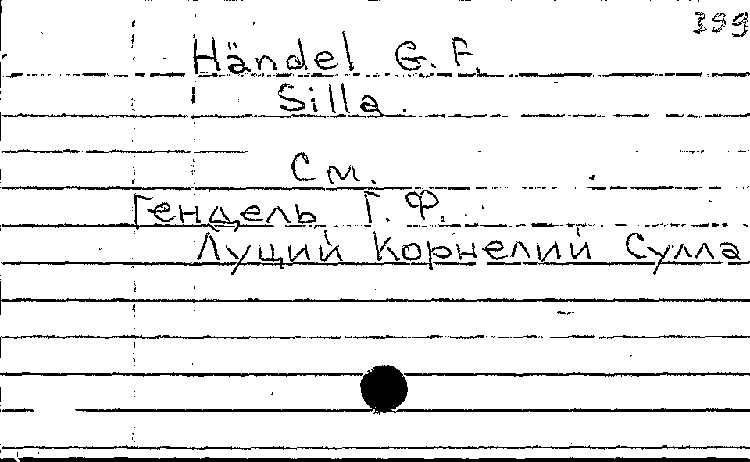 399
Händel G. F.
Silla.
См.
Гендель Г. Ф.
Луций Корнелий Сулла